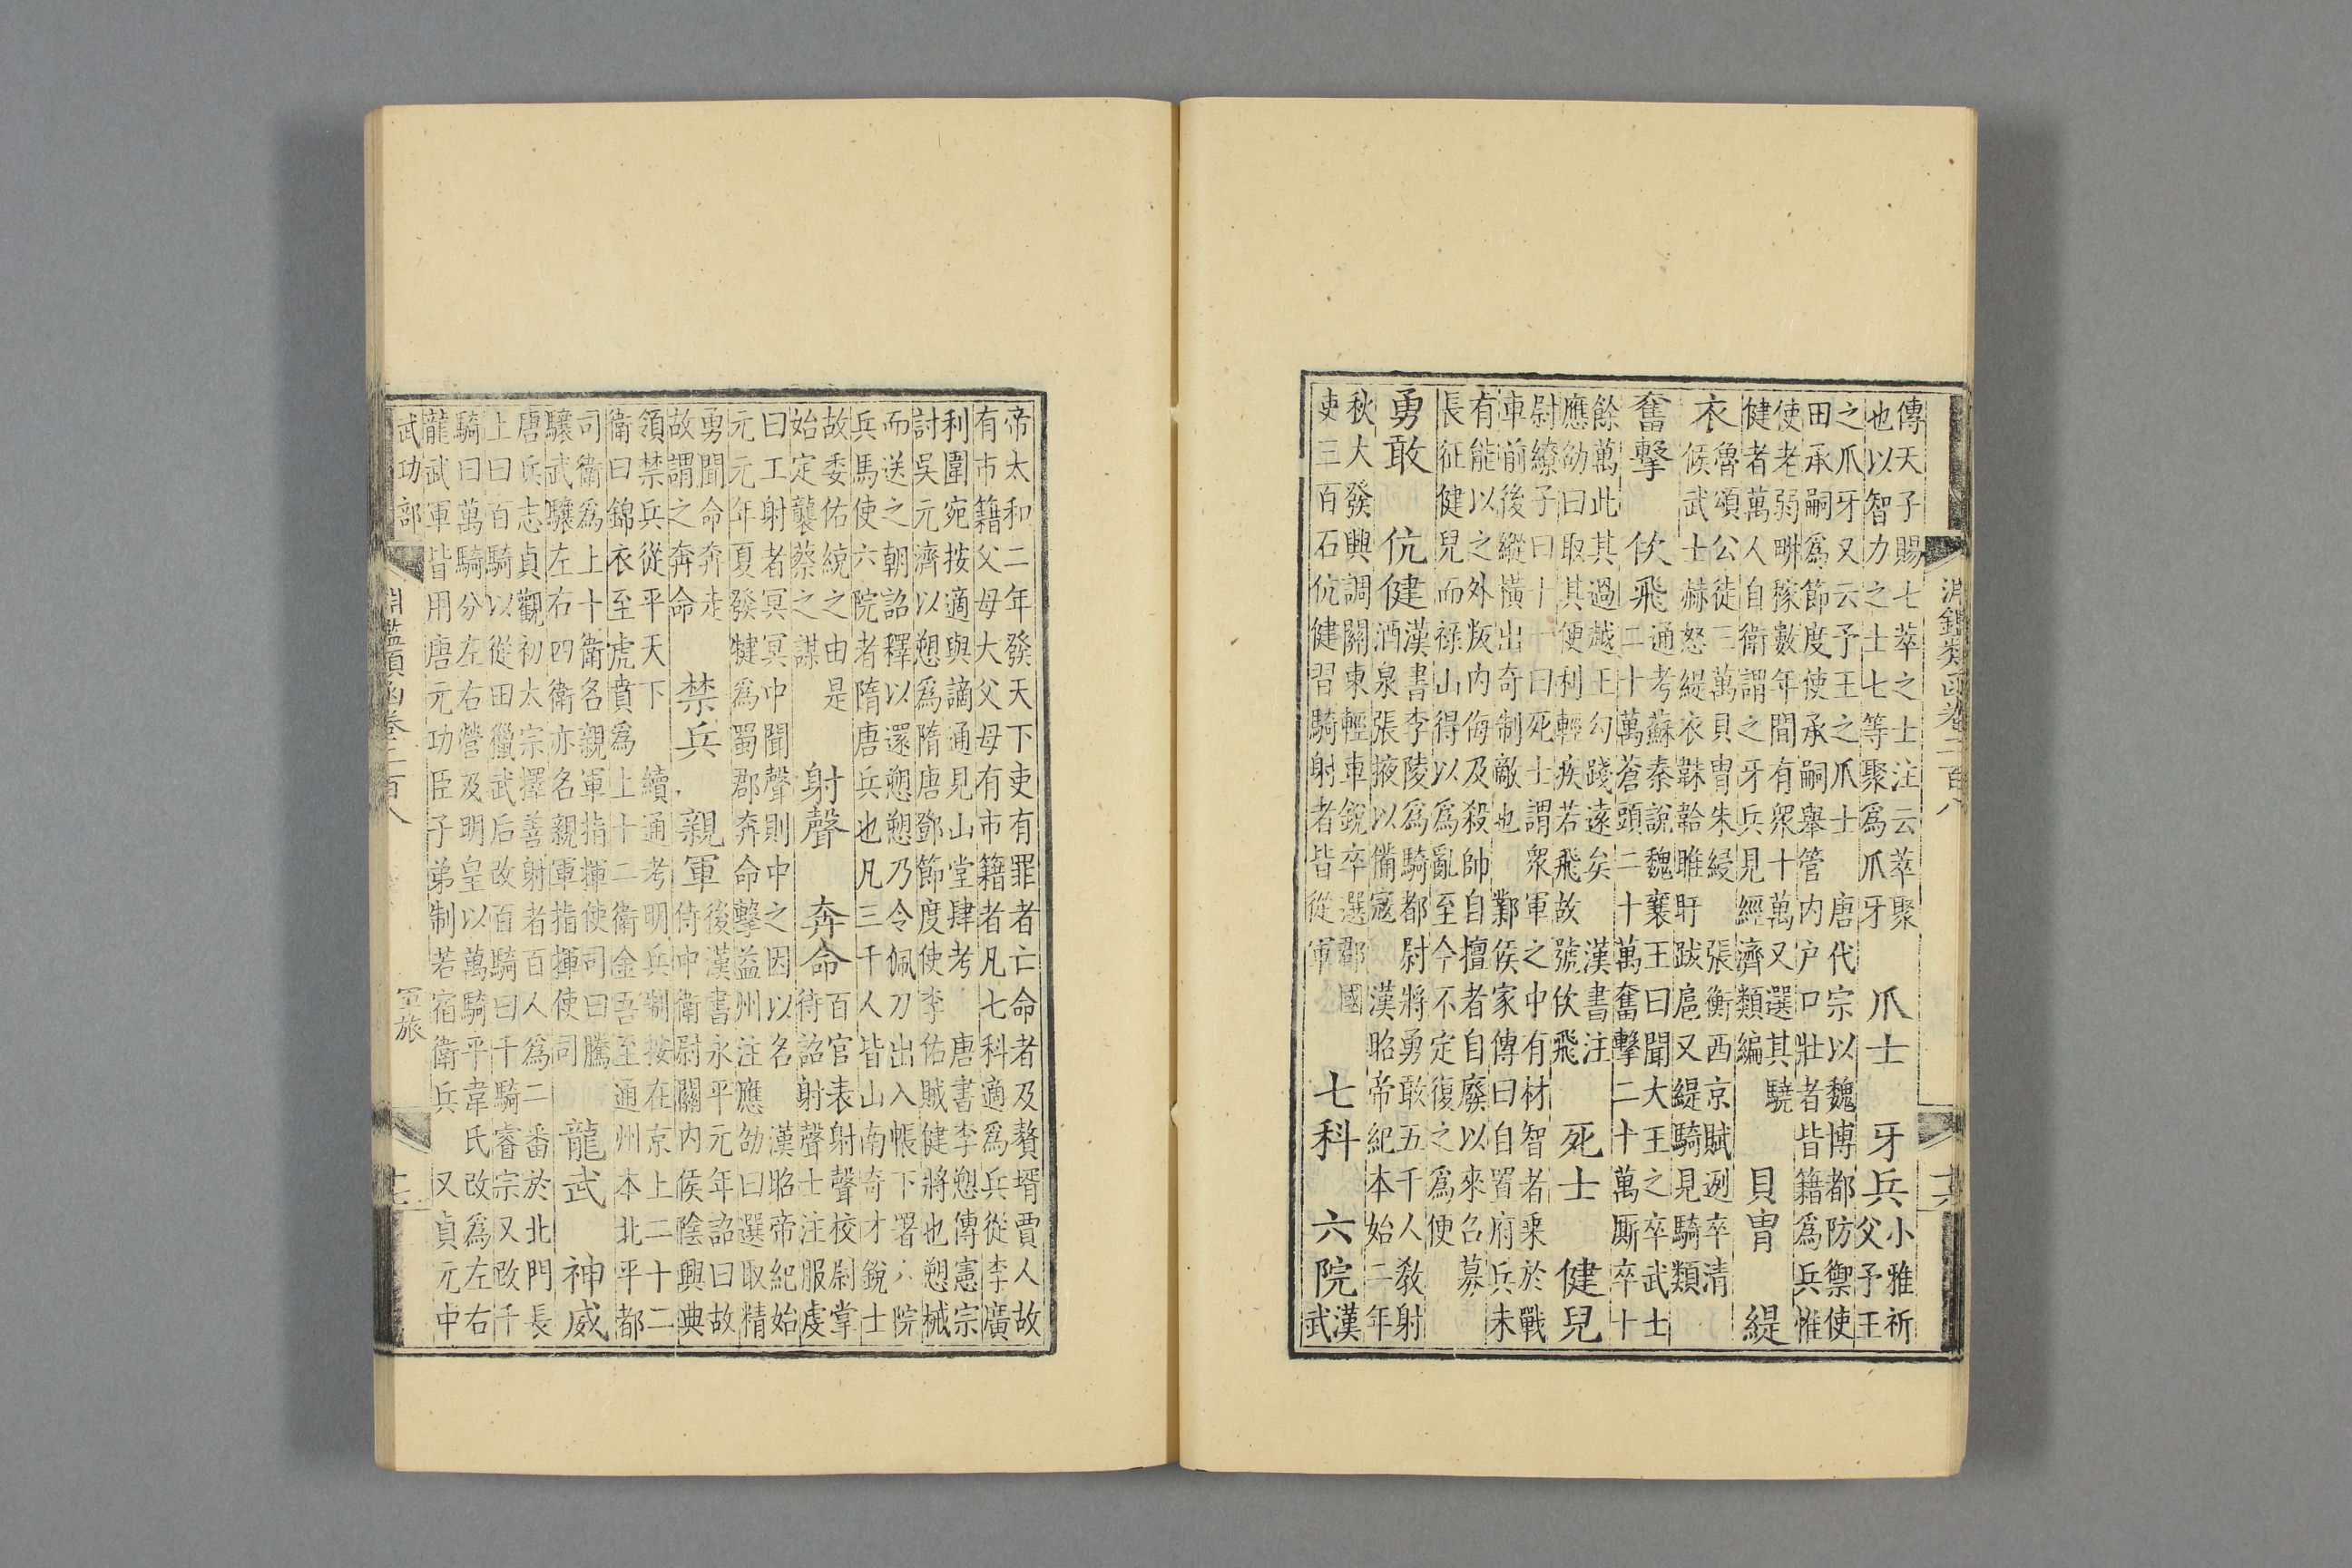 淵鑑類函卷二百八 十六
傳天子賜七萃之士注云萃聚
也以智力之士七等聚爲爪牙
爪士 牙兵
小雅祈
父予王
之爪牙又云予王之爪士 唐代宗以魏博都防禦使
田承嗣爲節度使承嗣舉管内户口壯者皆籍爲兵惟
使老弱畊稼數年間有衆十萬又選其驍
健者萬人自衛謂之牙兵見經濟類編
貝胄 緹
衣
魯頌公徒三萬貝胄朱綅 張衡西京賦迾卒清
候武士赫怒緹衣韎韐睢盱跋扈又緹騎見騎類
奮擊 佽飛
通考蘇秦說魏襄王曰聞大王之卒武士
二十萬蒼頭二十萬奮擊二十萬厮卒十
餘萬此其過越王勾踐遠矣 漢書注
應劭曰取其便利輕疾若飛故號佽飛
死士 健兒
尉繚子曰十一曰死士謂衆軍之中有材智者乗於戰
車前後縱横出奇制敵也 鄴侯家傳曰自置府兵未
有能以之外叛内侮及殺帥自擅者自廢以來召募
長征健兒而禄山得以爲亂至今不定復之爲便
勇敢 伉健
漢書李陵爲騎都尉將勇敢五千人教射
酒泉張掖以備寇 漢昭帝紀本始二年
秋大發興調關東輕車銳卒選郡國
吏三百石伉健習騎射者皆從軍
七科 六院
漢
武
帝太和二年發天下吏有罪者亡命者及贅壻賈人故
有市籍父母大父母有市籍者凡七科適爲兵從李廣
利圍宛按適與謫通見山堂肆考 唐書李愬傳憲宗
討吳元濟以愬爲隋唐鄧節度使李佑賊健將也愬械
而送之朝詔釋以還愬愬乃令佩刀出入帳下署六院
兵馬使六院者隋唐兵也凡三千人皆山南奇才銳士
故委佑統之由是
始定襲蔡之謀
射聲 奔命
百官表射聲校尉掌
待詔射聲士注服虔
曰工射者冥冥中聞聲則中之因以名 漢昭帝紀始
元元年夏發犍爲蜀郡奔命擊益州注應劭曰選取精
勇聞命奔走
故謂之奔命
禁兵 親軍
後漢書永平元年詔曰故
侍中衛尉關内侯陰興典
領禁兵從平天下 續通考明兵制按在京上二十二
衛曰錦衣至虎賁爲上十二衛金吾至通州本北平都
司衛爲上十衛名親軍指揮使司曰騰
驤武驤左右四衛亦名親軍指揮使司
龍武 神威
唐兵志貞觀初太宗擇善射者百人爲二番於北門長
上曰百騎以從田獵武后改百騎曰千騎睿宗又改千
騎曰萬騎分左右營及明皇以萬騎平韋氏改爲左右
龍武軍皆用唐元功臣子弟制若宿衛兵 又貞元中
武功部 淵鑑類函卷二百八 軍旅 十七